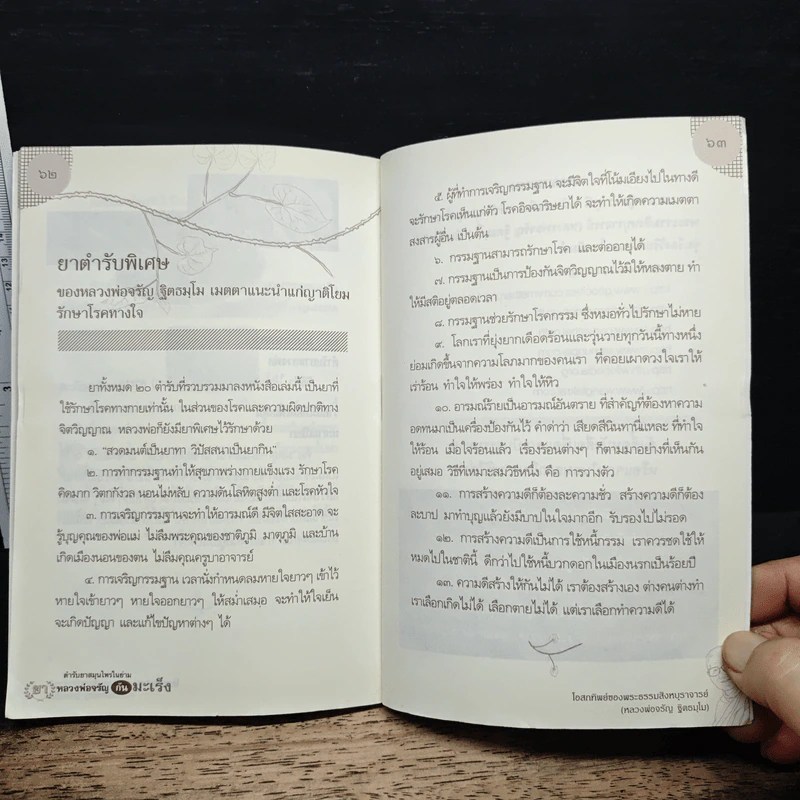 ๖๒
ยาตำรับพิเศษ
ของหลวงพ่อจรัญ ฐิตธมฺโม เมตตาแนะนำแก่ญาติโยม
รักษาโรคทางใจ
ยาทั้งหมด ๒๐ ตำรับที่รวบรวมมาลงหนังสือเล่มนี้ เป็นยาที่
ใช้รักษาโรคทางกายเท่านั้น ในส่วนของโรคและความผิดปกติทาง
จิตวิญญาณ หลวงพ่อก็ยังมียาพิเศษไว้รักษาด้วย
๑. “สวดมนต์เป็นยาทา วิปัสสนาเป็นยากิน”
๒. การทำกรรมฐานทำให้สุขภาพร่างกายแข็งแรง รักษาโรค
คิดมาก วิตกกังวล นอนไม่หลับ ความดันโลหิตสูงต่ำ และโรคหัวใจ
๓. การเจริญกรรมฐานจะทำให้อารมณ์ดี มีจิตใสสะอาด จะ
รู้บุญคุณของพ่อแม่ ไม่ลืมพระคุณของชาติภูมิ มาตุภูมิ และบ้าน
เกิดเมืองนอนของตน ไม่ลืมคุณครูบาอาจารย์
๔. การเจริญกรรมฐาน เวลานั่งกำหนดลมหายใจยาวๆ เข้าไว้
หายใจเข้ายาวๆ หายใจออกยาวๆ ให้สม่ำเสมอ จะทำให้ใจเย็น
จะเกิดปัญญา และแก้ไขปัญหาต่างๆ ได้
ตำรับยาสมุนไพรในย่าม
ยา หลวงพ่อจรัญ กัน มะเร็ง
๖๓
๕. ผู้ที่ทำการเจริญกรรมฐาน จะมีจิตใจที่โน้มเอียงไปในทางดี
จะรักษาโรคเห็นแก่ตัว โรคอิจฉาริษยาได้ จะทำให้เกิดความเมตตา
สงสารผู้อื่น เป็นต้น
๖. กรรมฐานสามารถรักษาโรค และต่ออายุได้
๗. กรรมฐานเป็นการป้องกันจิตวิญญาณไว้มิให้หลงตาย ทำ
ให้มีสติอยู่ตลอดเวลา
๘. กรรมฐานช่วยรักษาโรคกรรม ซึ่งหมอทั่วไปรักษาไม่หาย
๙. โลกเราที่ยุ่งยากเดือดร้อนและวุ่นวายทุกวันนี้ทางหนึ่ง
ย่อมเกิดขึ้นจากความโลภมากของคนเรา ที่คอยเผาดวงใจเราให้
เร่าร้อน ทำใจให้พร่อง ทำใจให้หิว
๑๐. อารมณ์ร้ายเป็นอารมณ์อันตราย ที่สำคัญที่ต้องหาความ
อดทนมาเป็นเครื่องป้องกันไว้ คำด่าว่า เสียดสีนินทานี่แหละ ที่ทำใจ
ให้ร้อน เมื่อใจร้อนแล้ว เรื่องร้อนต่างๆ ก็ตามมาอย่างที่เห็นกัน
อยู่เสมอ วิธีที่เหมาะสมวิธีหนึ่ง คือ การวางตัว
๑๑. การสร้างความดีก็ต้องละความชั่ว สร้างความดีก็ต้อง
ละบาป มาทำบุญแล้วยังมีบาปในใจมากอีก รับรองไปไม่รอด
๑๒. การสร้างความดีเป็นการใช้หนี้กรรม เราควรชดใช้ให้
หมดไปในชาตินี้ ดีกว่าไปใช้หนี้บวกดอกในเมืองนรกเป็นร้อยปี
๑๓. ความดีสร้างให้กันไม่ได้ เราต้องสร้างเอง ต่างคนต่างทำ
เราเลือกเกิดไม่ได้ เลือกตายไม่ได้ แต่เราเลือกทำความดีได้
โอสถทิพย์ของพระธรรมสิงหบุราจารย์
(หลวงพ่อจรัญ ฐิตธมฺโม)